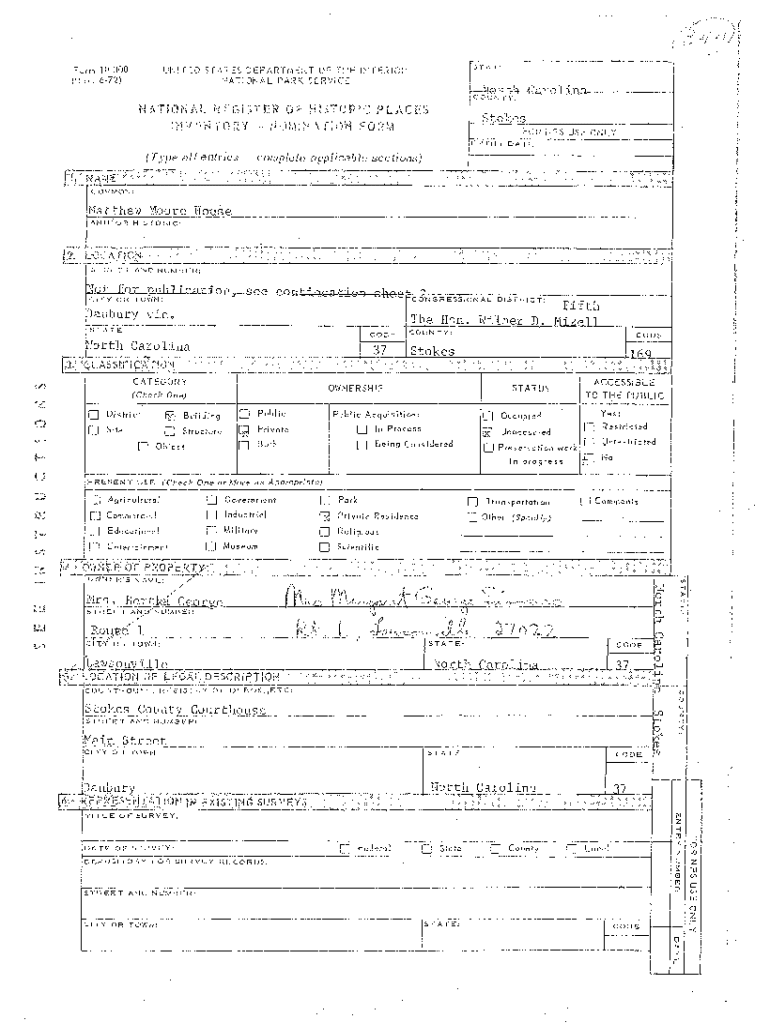 UNITED STATES DEPARTMENT OF THE INTERIOR
NATIONAL PARK SERVICE
NATIONAL REGISTER OF HISTORIC PLACES
INVENTORY - NOMINATION FORM
(Type all entries - complete applicable sections)
STATE:
North Carolina
COUNTY:
Stokes
FOR NPS USE ONLY
ENTRY DATE
1. NAME
COMMON:
Matthew Moore House
AND/OR HISTORIC:
2. LOCATION
STREET AND NUMBER:
Not for publication, see continuation sheet
CITY OR TOWN:
Danbury vic.
CONGRESSIONAL DISTRICT: Fifth
The Hon. Wilmer D. Mizell
STATE
North Carolina
CODE
37
COUNTY:
Stokes
CODE
169
3. CLASSIFICATION
CATEGORY
(Check One)
OWNERSHIP
STATUS
ACCESSIBLE
TO THE PUBLIC
District Building
Site Structure
Object
Public
Private
Both
Public Acquisition:
In Process
Being Considered
Occupied
Unoccupied
Preservation work
in progress
Yes:
Restricted
Unrestricted
No
PRESENT USE (Check One or More as Appropriate)
Agricultural Government Park Transportation Comments
Commercial Industrial Private Residence Other (Specify)
Educational Military Religious
Entertainment Museum Scientific
4. OWNER OF PROPERTY
OWNER'S NAME:
Mrs. George Mrs Margaret George
STREET AND NUMBER:
Route 1 Rt. 1, 27022
CITY OR TOWN:
Lawsonville
STATE:
North Carolina
CODE
37
5. LOCATION OF LEGAL DESCRIPTION
COURTHOUSE, REGISTRY OF DEEDS, ETC:
Stokes County Courthouse
STREET AND NUMBER:
Main Street
CITY OR TOWN:
Danbury
STATE
North Carolina
CODE
37
6. REPRESENTATION IN EXISTING SURVEYS
TITLE OF SURVEY:
DATE OF SURVEY: Federal State County Local
DEPOSITORY FOR SURVEY RECORDS:
STREET AND NUMBER:
CITY OR TOWN:
STATE:
CODE
STATE:
North Carolina
COUNTY:
Stokes
ENTRY NUMBER
DATE
FOR NPS USE ONLY